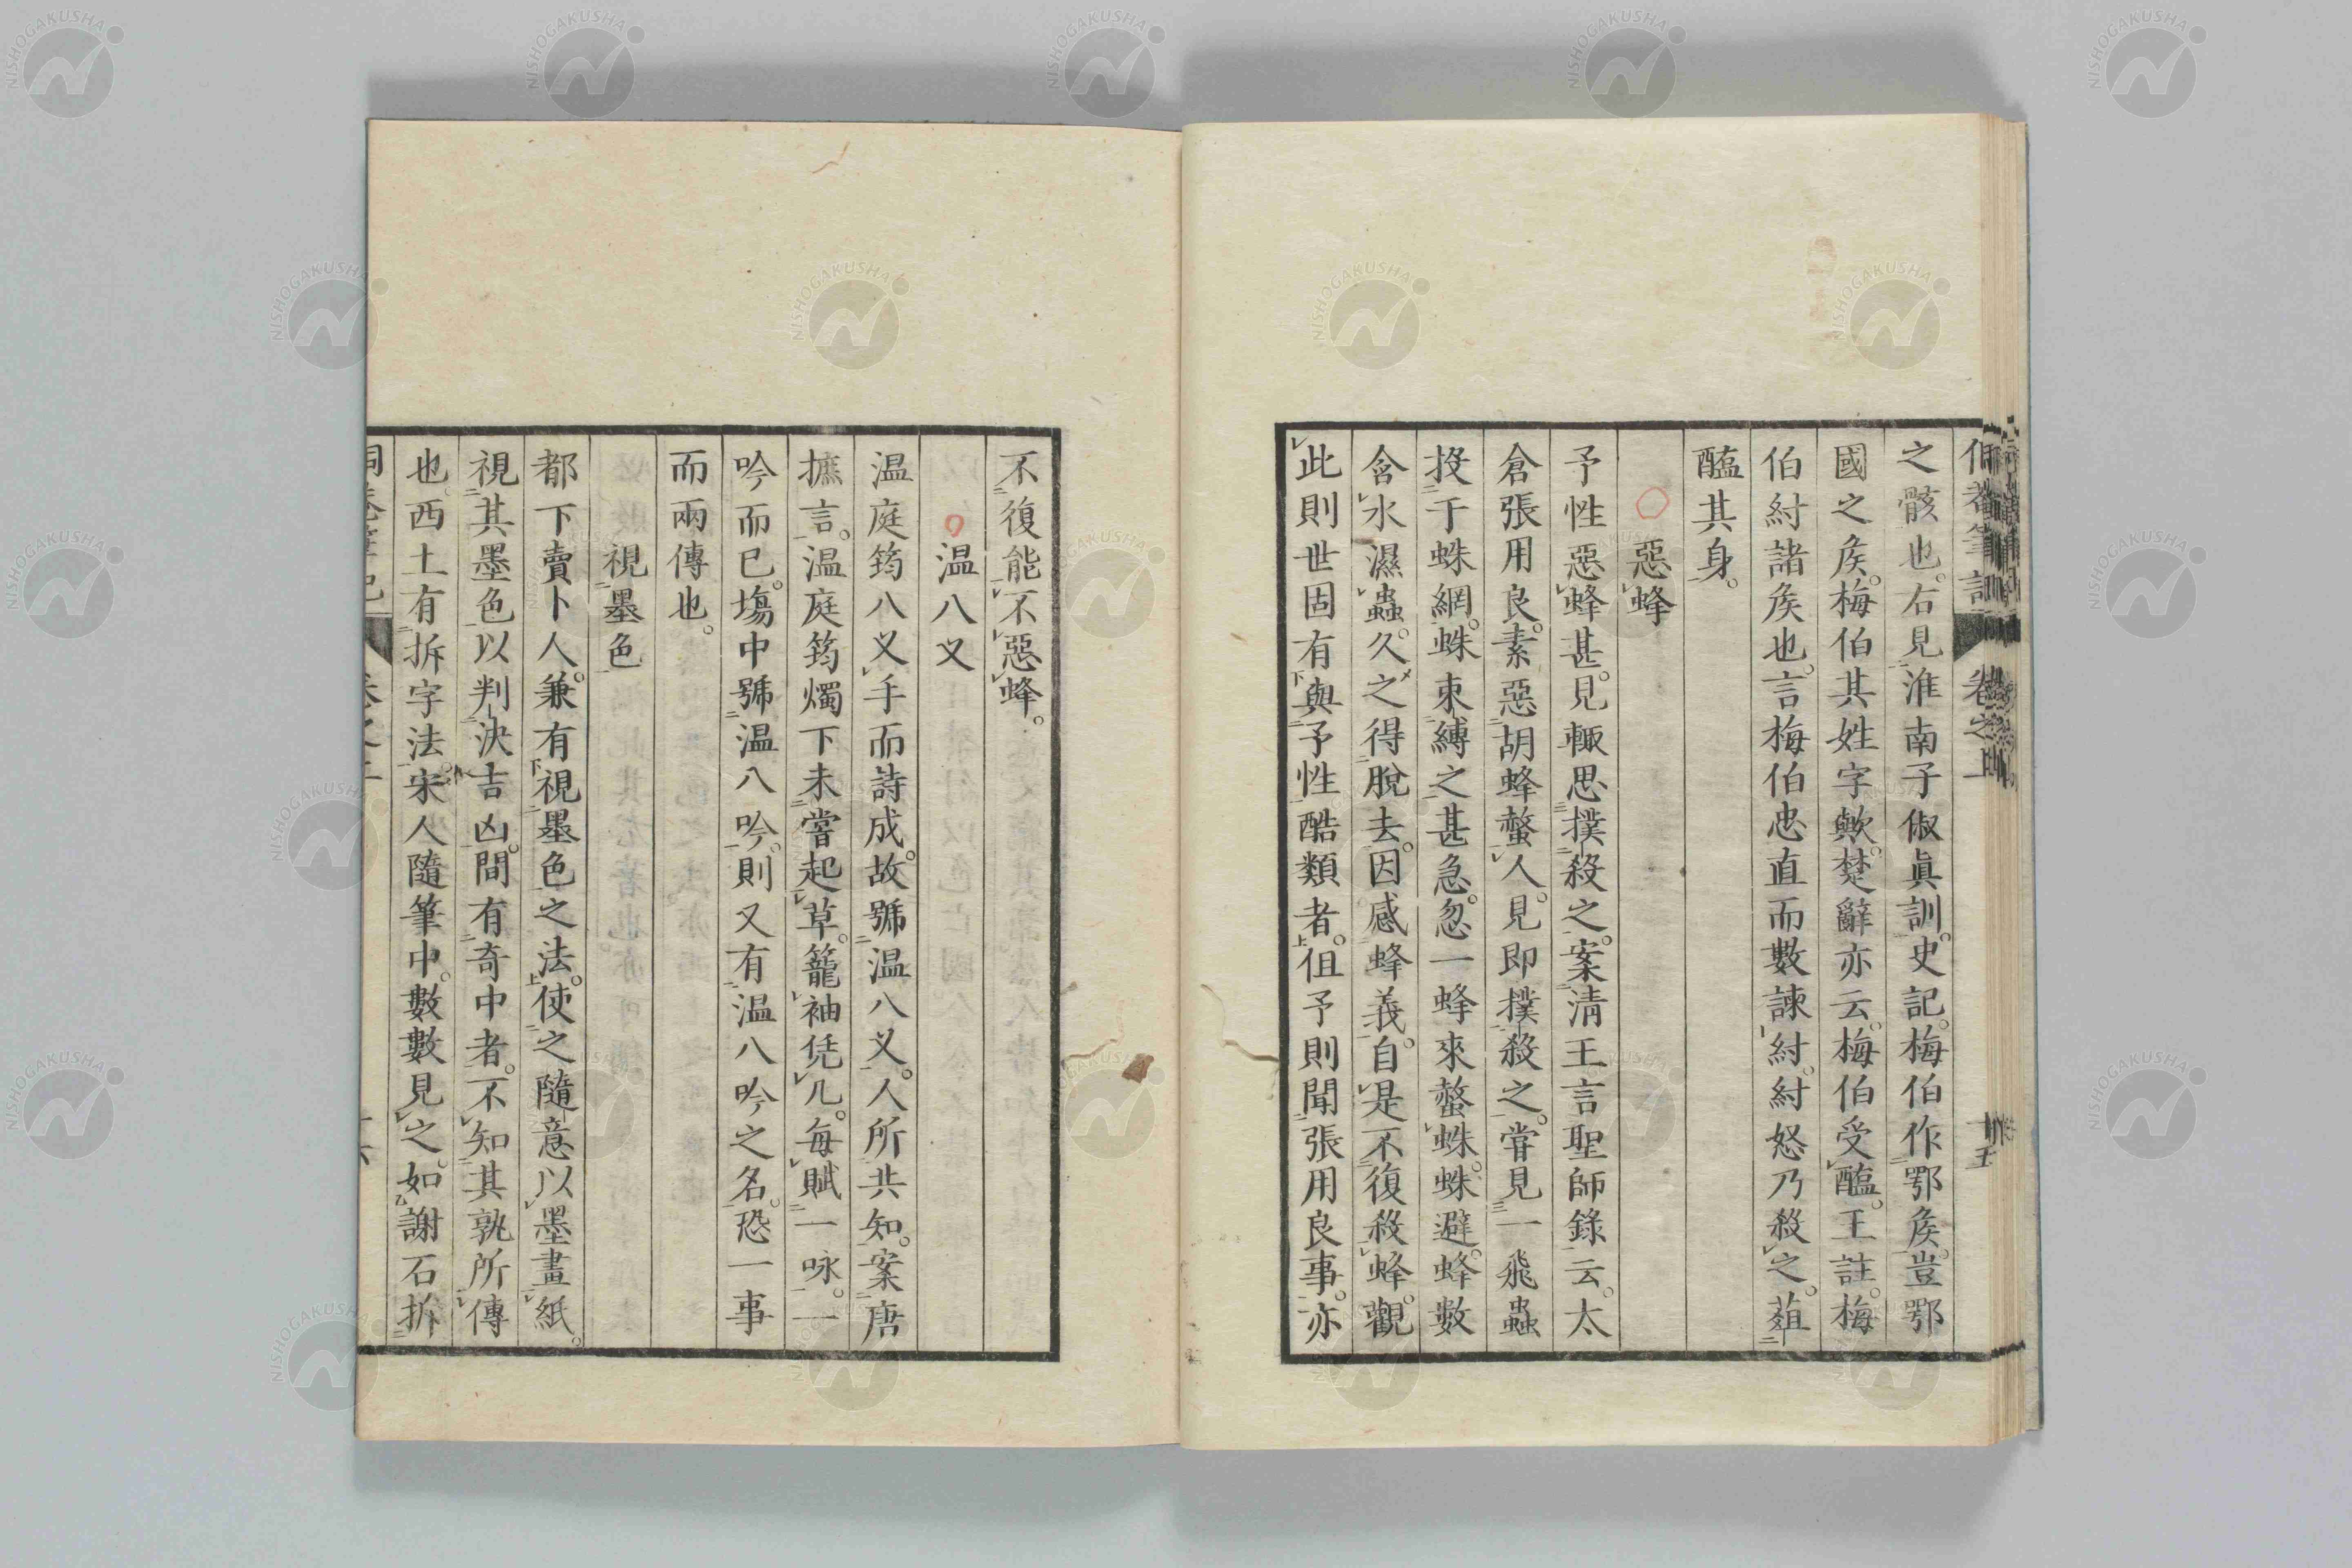 之骸也。右見淮南子俶眞訓。史記。梅伯作鄂矦。豈鄂
國之矦。梅伯其姓字歟。楚辭亦云。梅伯受醢。王註。梅
伯紂諸矦也。言梅伯忠直而數諫紂。紂怒乃殺之。葅
醢其身。
惡蜂
予性惡蜂甚。見輙思撲殺之。案淸王言聖師錄云。太
倉張用良。素惡胡蜂螫人。見即撲殺之。嘗見一飛蟲
投于蛛網。蛛束縛之甚急。忽一蜂來螫蛛。蛛避。蜂數
含水濕蟲。久之得脫去。因感蜂義。自是不復殺蜂。觀
此則世固有與予性酷類者。但予則聞張用良事。亦
不復能不惡蜂。
温八叉
温庭筠八叉手而詩成。故號温八叉。人所共知。案唐
摭言。温庭筠燭下未嘗起草。籠袖凭几。每賦一咏。一
吟而已。塲中號温八吟。則又有温八吟之名。恐一事
而兩傳也。
視墨色
都下賣卜人。兼有視墨色之法。使之隨意以墨畫紙。
視其墨色以判決吉凶。間有奇中者。不知其孰所傳
也。西土有拆字法。宋人隨筆中。數數見之。如謝石拆